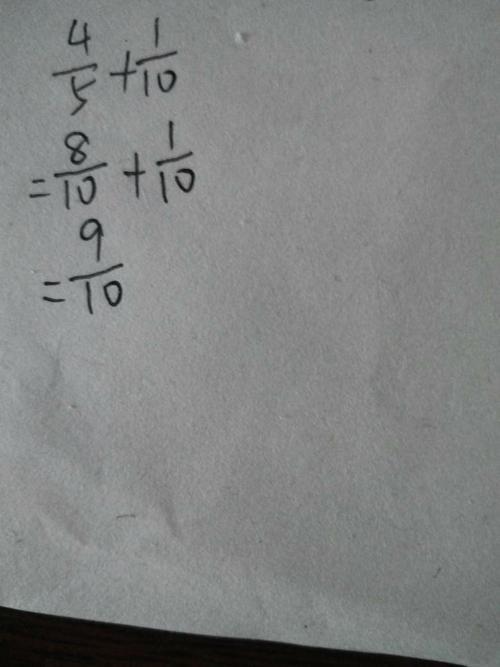 4/5 + 1/10
= 8/10 + 1/10
= 9/10